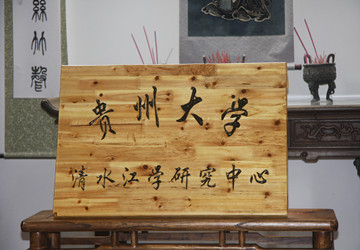 贵州大学
清水江学研究中心
丝竹声